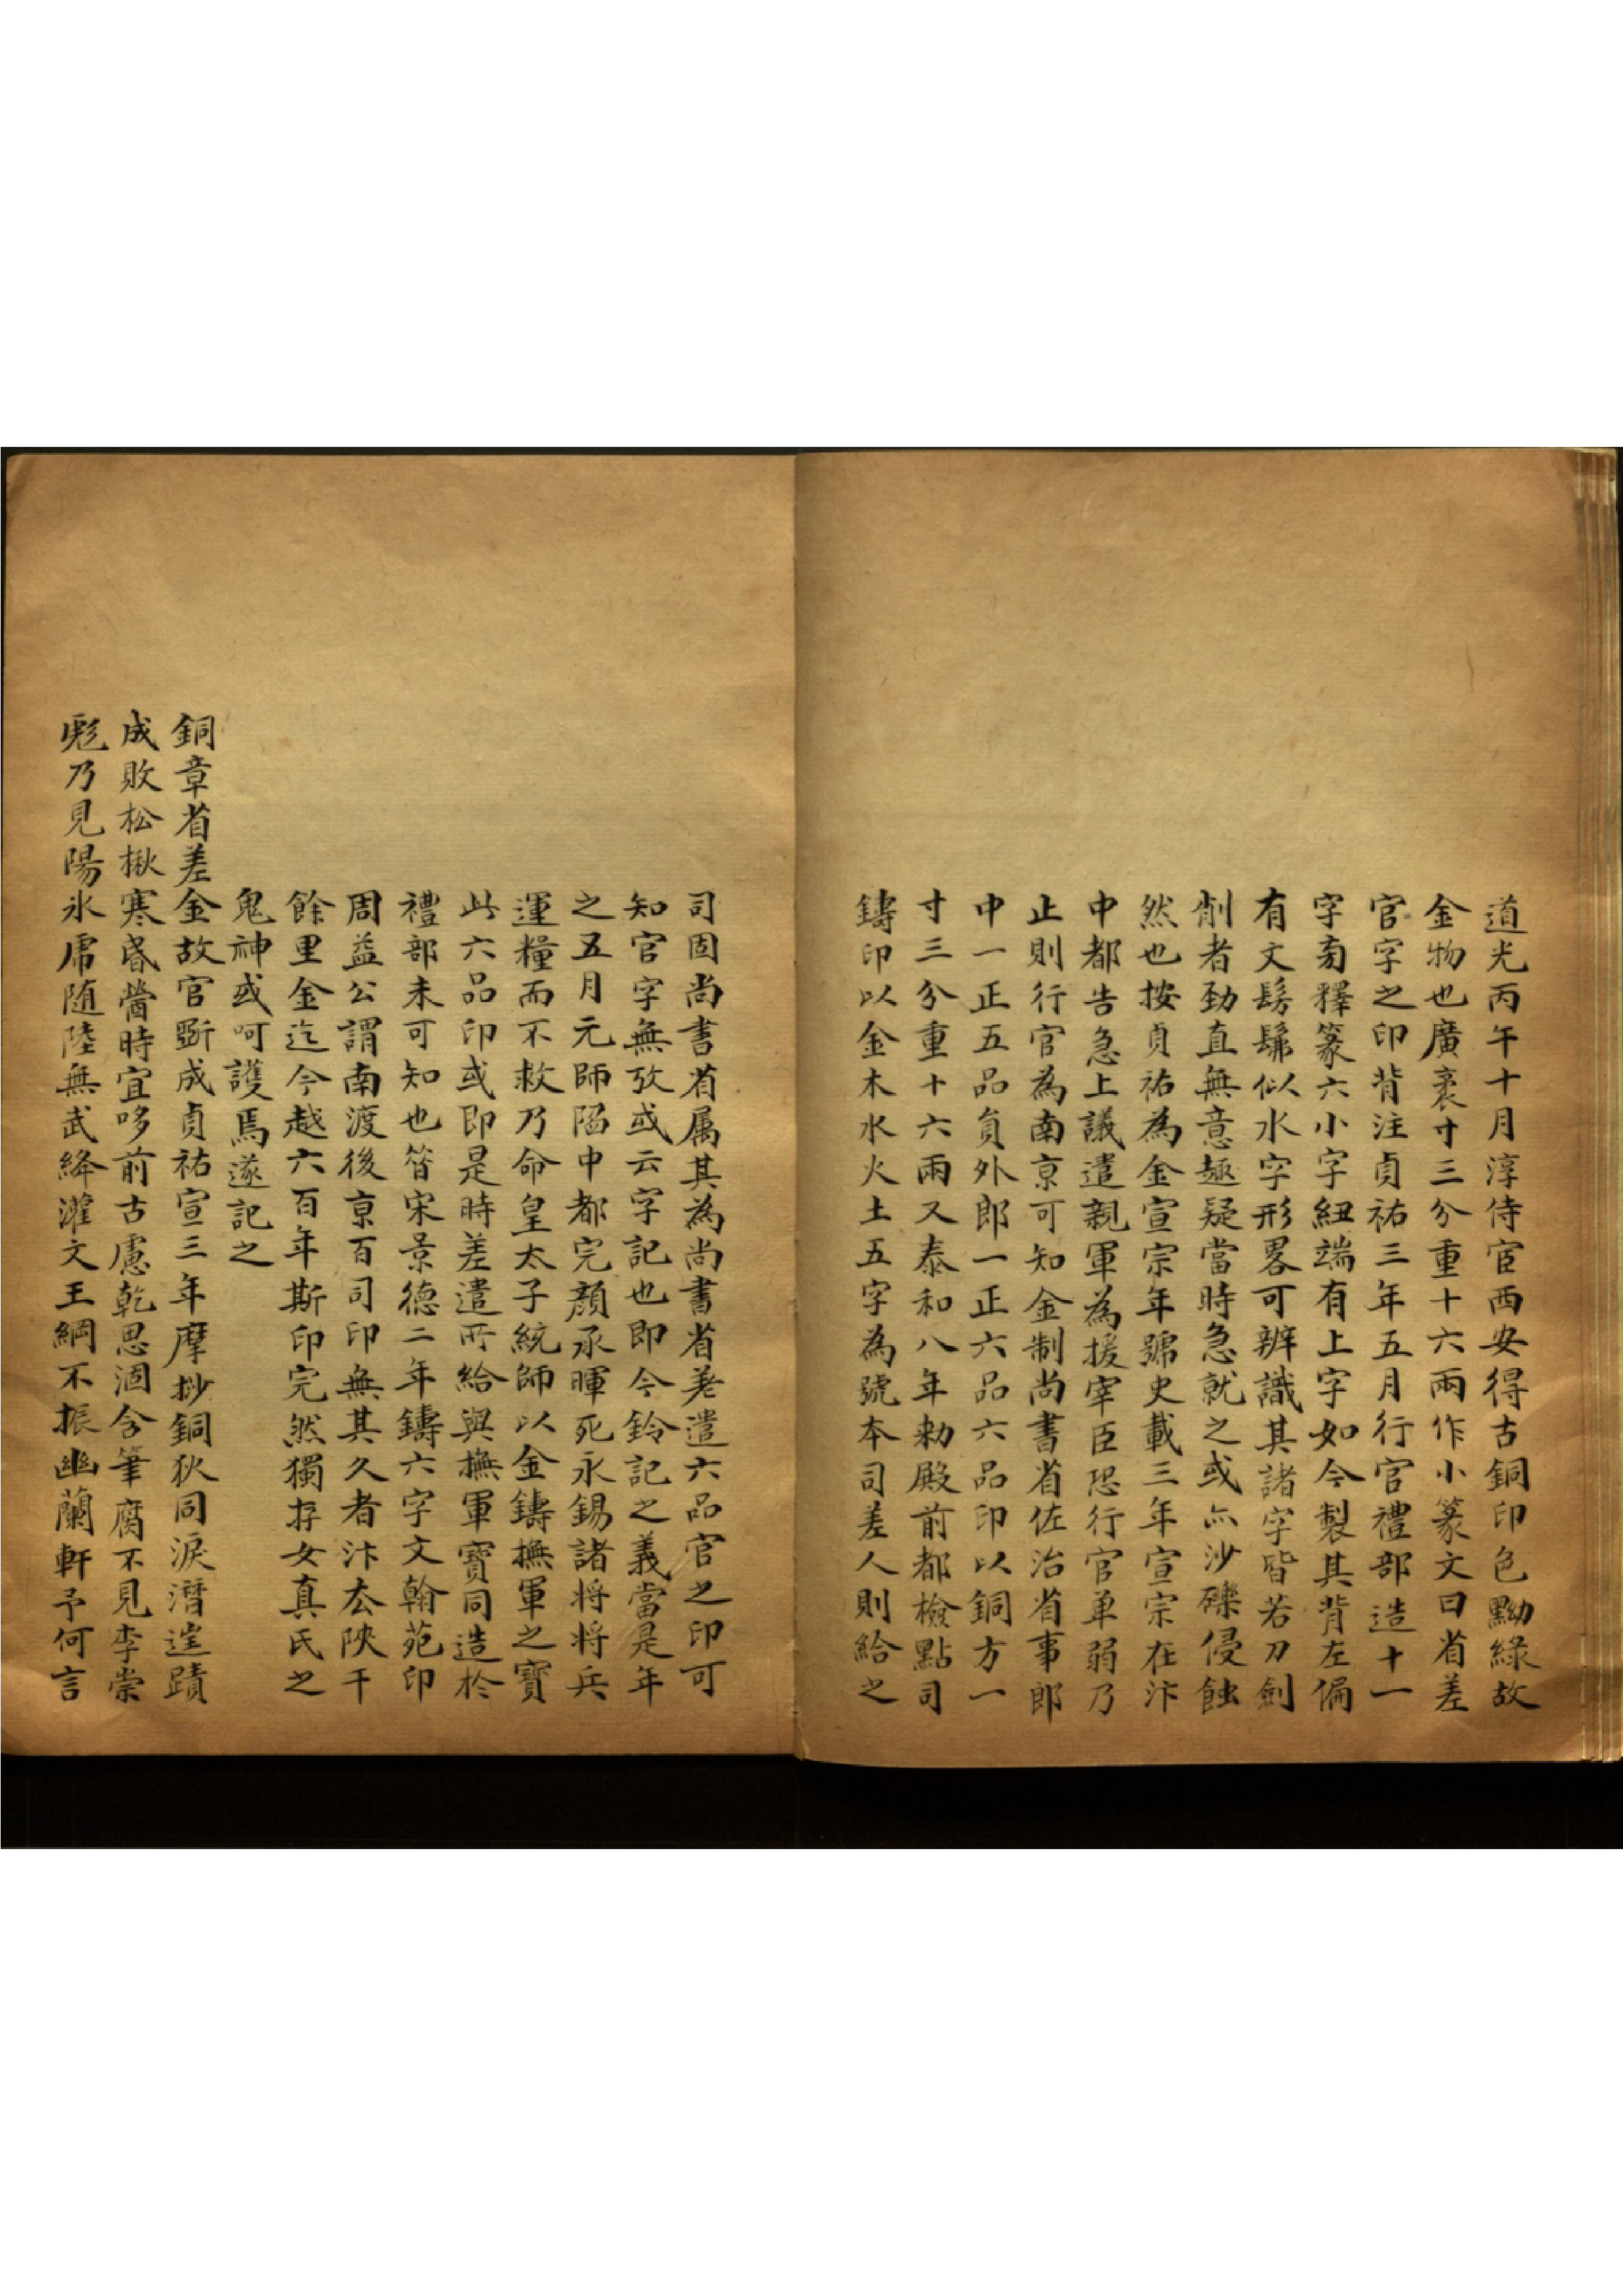 道光丙午十月淳侍宦西安得古銅印色黝綠故
金物也廣袤寸三分重十六兩作小篆文曰省差
官字之印背注貞祐三年五月行官禮部造十一
字旁釋篆六小字紐端有上字如今製其背左偏
有文髣髴似水字形畧可辨識其諸字皆若刀劍
削者勁直無意趣疑當時急就之或亦沙礫侵蝕
然也按貞祐為金宣宗年號史載三年宣宗在汴
中都告急上議遣親軍為援宰臣恐行官单弱乃
止則行官為南京可知金制尚書省佐治省事郎
中一正五品員外郎一正六品六品印以銅方一
寸三分重十六兩又泰和八年勑殿前都檢點司
鑄印以金木水火土五字為號本司差人則給之
司固尚書省属其為尚書省差遣六品官之印可
知官字無攷或云字記也即今鈐記之義當是年
之五月元師陷中都完顏承暉死永錫諸将将兵
運糧而不救乃命皇太子統師以金鑄撫軍之寶
此六品印或即是時差遣所給與撫軍寶同造於
禮部未可知也昝宋景德二年鑄六字文翰苑印
周益公謂南渡後亰百司印無其久者汴厺陝千
餘里金迄今越六百年斯印完然獨存女真氏之
鬼神或呵護焉遂記之
銅章省差金故官斲成貞祐宣三年摩抄銅狄同淚潛遑蹟
成敗松楸寒昬當時宜哆前古慮乾思涸含筆腐不見李崇
彪乃見陽氷虎随陸無武絳灌文王綱不振幽蘭軒予何言